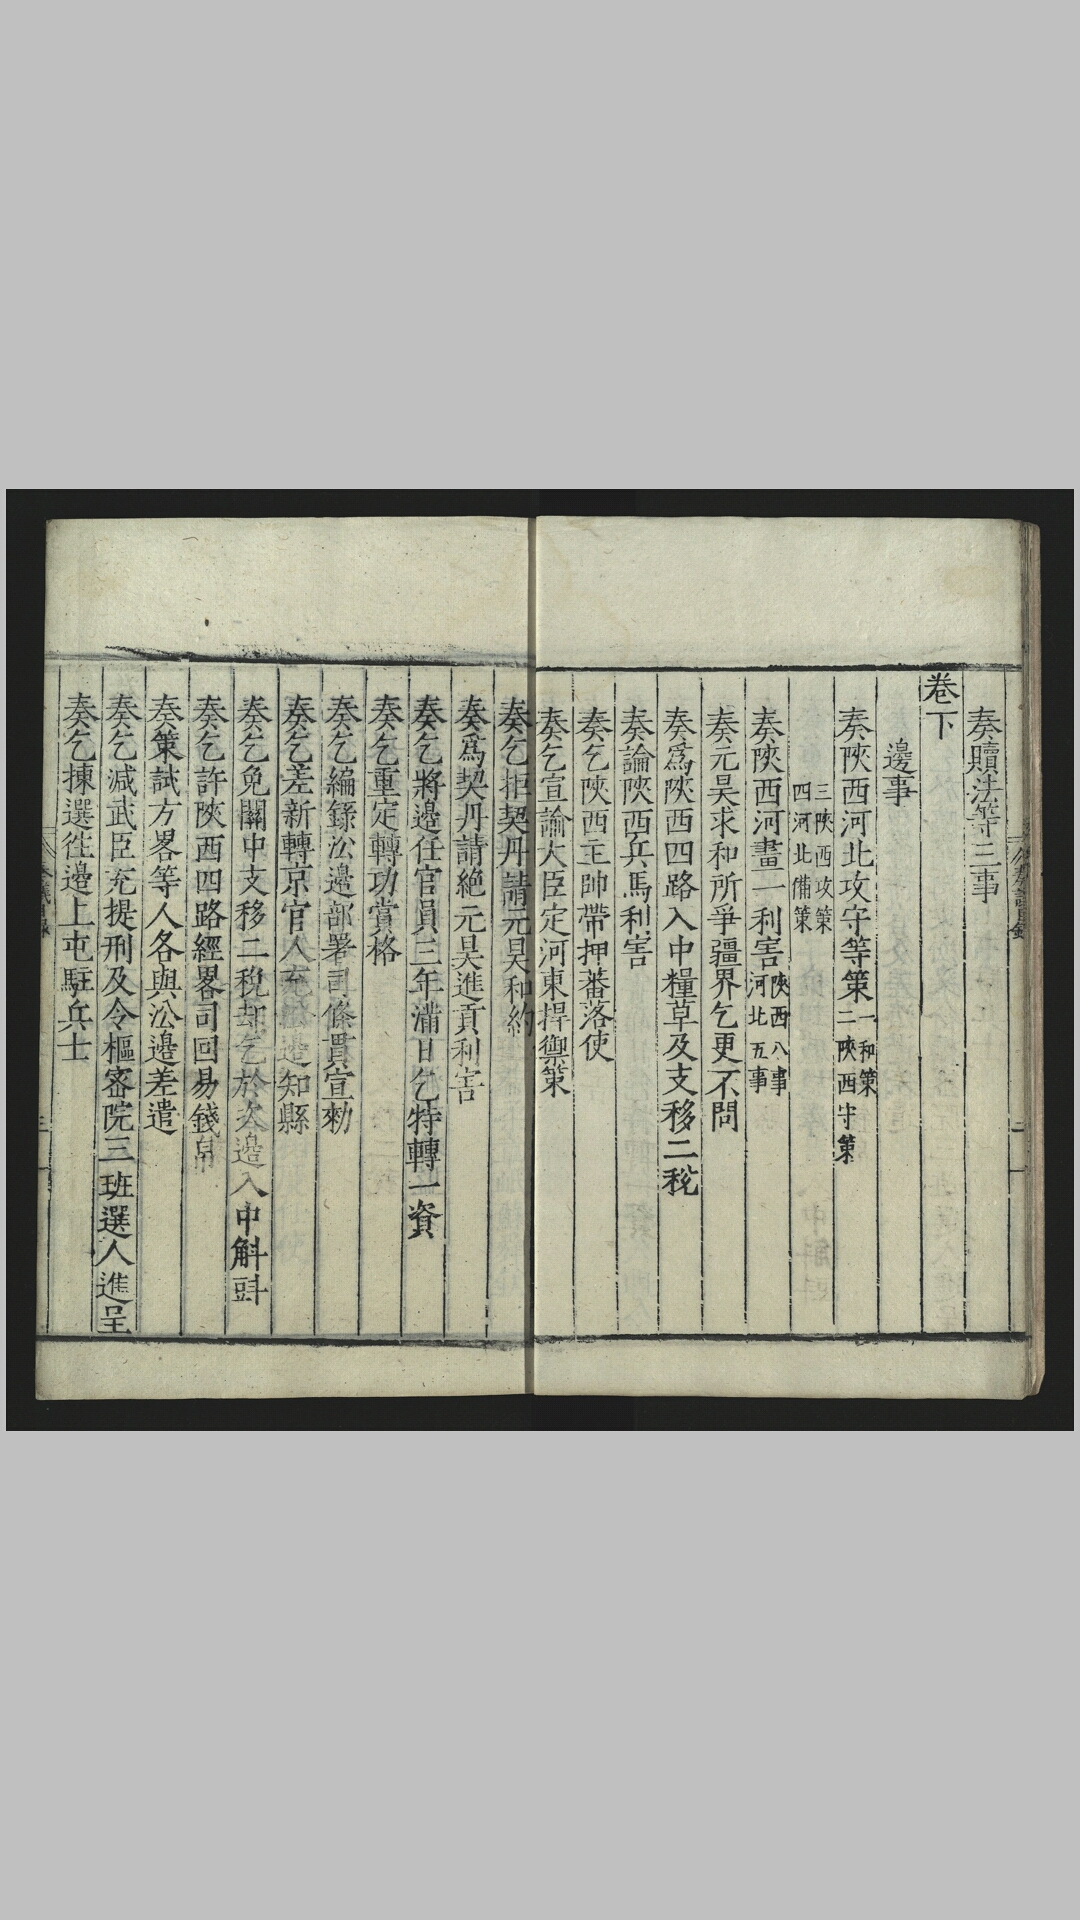 奏贖法等三事
卷下
邊事
奏陝西河北攻守等策一和策二陝西守策
三陝西攻策四河北備策
奏陝西河畫一利害陝西八事河北五事
奏元昊求和所爭疆界乞更不問
奏爲陝西四路入中糧草及支移二稅
奏論陝西兵馬利害
奏乞陝西主帥帶押蕃落使
奏乞宣諭大臣定河東捍禦策
奏乞拒契丹請元昊和約
奏爲契丹請絶元昊進貢利害
奏乞將邊任官員三年滿日乞特轉一資
奏乞重定轉功賞格
奏乞編錄㳂邊部署司條貫宣勑
奏乞差新轉京官人充㳂邊知縣
奏乞免關中支移二稅却乞於次邊入中斛㪷
奏乞許陝西四路經畧司回易錢帛
奏策試方畧等人各與㳂邊差遣
奏乞減武臣充提刑及令樞密院三班選人進呈
奏乞揀選徃邊上屯駐兵士
奏議目錄
三